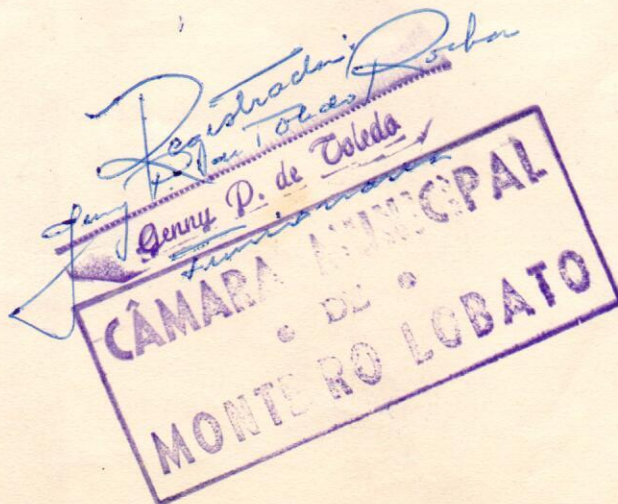 Registrado:
Jenny P. de Toledo Rocha
Genny P. de Toledo
Funcionaria
CÂMARA MUNICIPAL
• DE •
MONTEIRO LOBATO